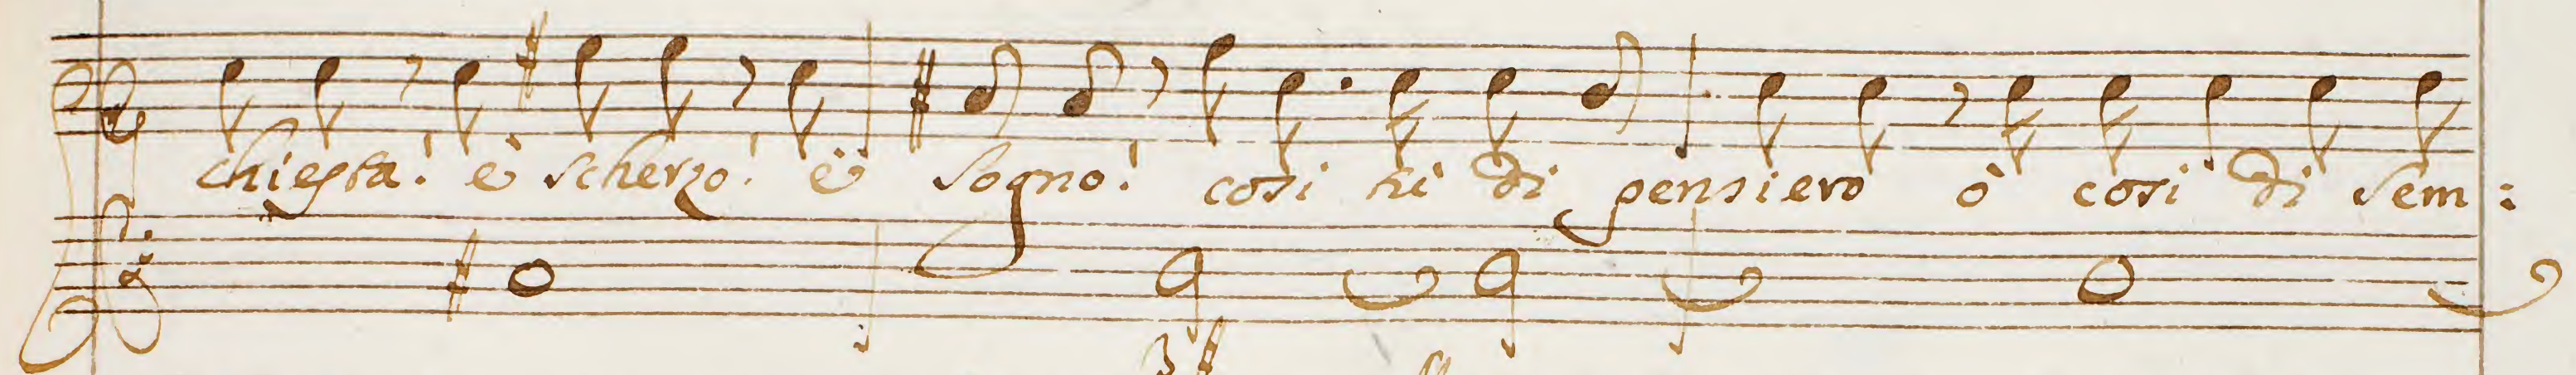 chiesta! è scherzo! è sogno! cosi di pensiero ò cosi di sem:
3